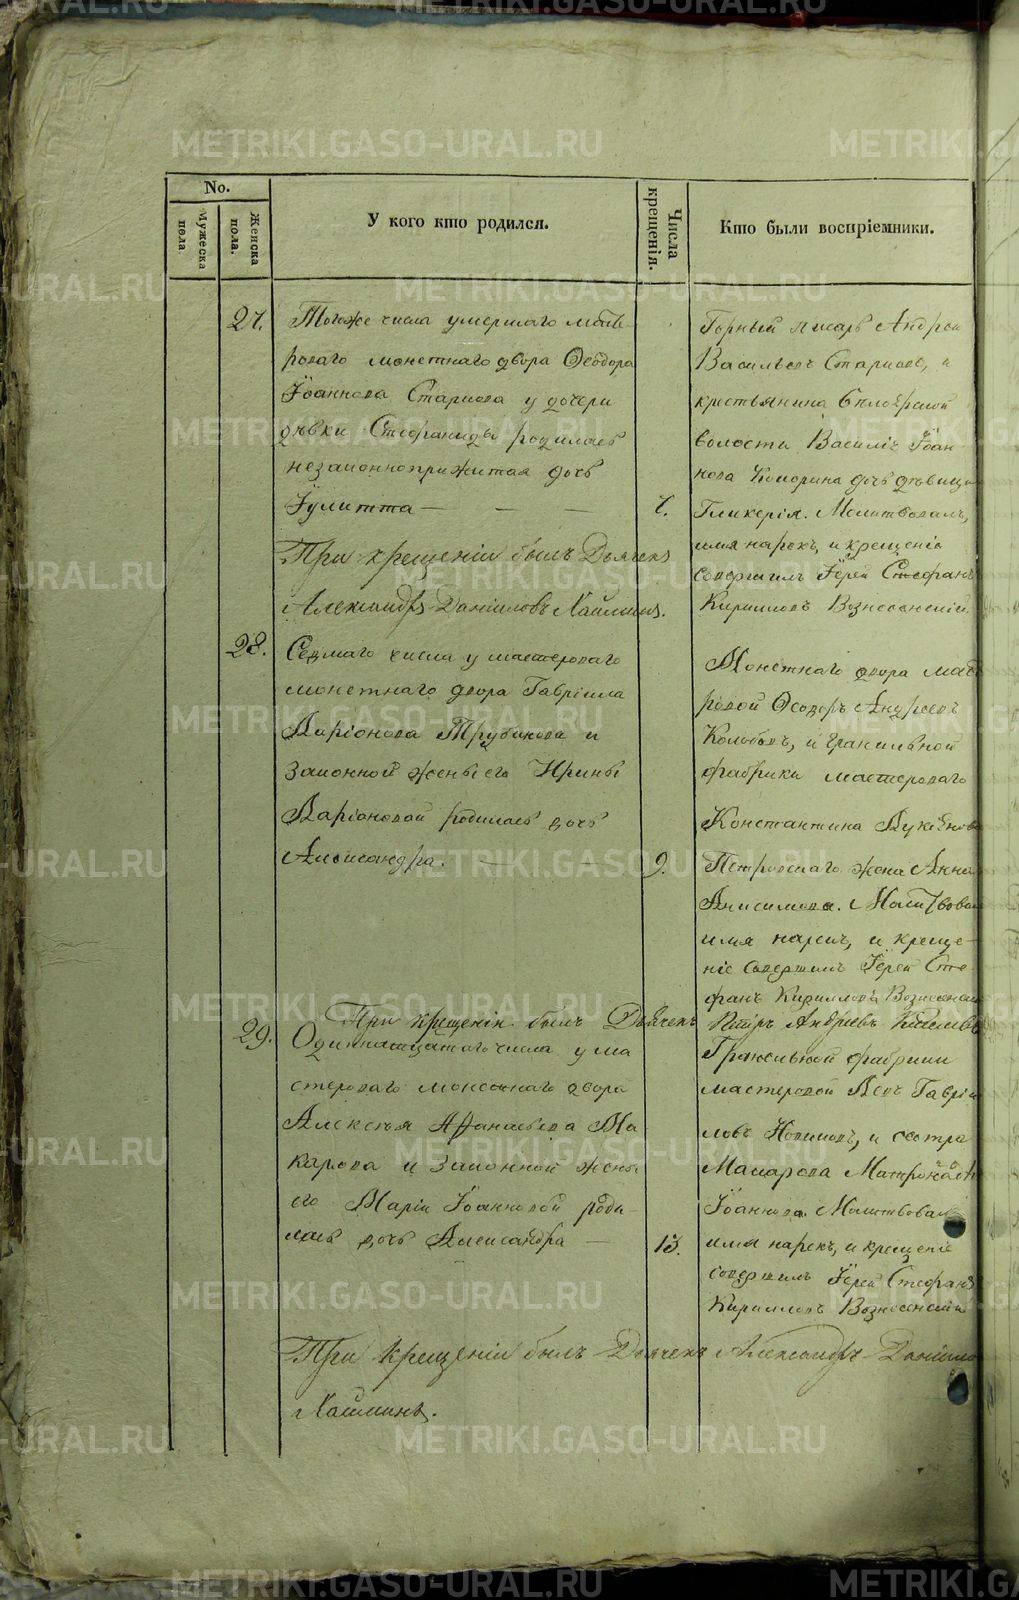 METRIKI.GASO-URAL.RU
No.
Мужеска пола.
Женска пола.
У кого кто родился.
Числа крещенія.
Кто были воспріемники.
27.
Тогоже числа умершаго масте-
роваго монетнаго двора Ѳеодора
Іоаннова Старцова у дочери
дѣвки Стефаниды родилась
незаконноприжитая дочь
Іулитта — — —
7.
При крещеніи былъ Дьячекъ
Александръ Даніиловъ
Горный писарь Андрей
Васильевъ Старцовъ, и
крестьянина
волости Василія Іоан-
нова дочь дѣвица
Гликерія. Молитвовалъ,
имя нарекъ, и крещеніе
совершилъ Іерей Стефанъ
Кирилловъ Вознесенскій
28.
Седмаго числа у мастероваго
монетнаго двора Гавріила
Ларіонова Трубакова и
законной жены его Ирины
Ларіоновой родилась дочь
Александра. — —
9.
Монетнаго двора масте-
ровой Ѳеодоръ Андреевъ
Колобовъ, и гранильной
фабрики мастероваго
Константина
Петровскаго жена Анна
Анисимова. Молитвовалъ
имя нарекъ, и креще-
ніе совершилъ Іерей Сте-
фанъ Кирилловъ Вознесенскій
При крещеніи былъ Дьячекъ Петръ Андреевъ
29.
Одиннадцатаго числа у ма-
стероваго монетнаго двора
Алексѣя Афанасьева Ма-
карова и законной жены
его Маріи Іоанновой роди-
лась дочь Александра —
13.
Гранильной фабрики
мастеровой Левъ Гаврiи-
ловъ Новиковъ, и сестра
Макарова Матрона
Іоаннова. Молитвовалъ
имя нарекъ, и крещеніе
совершилъ Іерей Стефанъ
Кирилловъ Вознесенскій
При крещеніи былъ Дьячекъ Александръ Даніиловъ